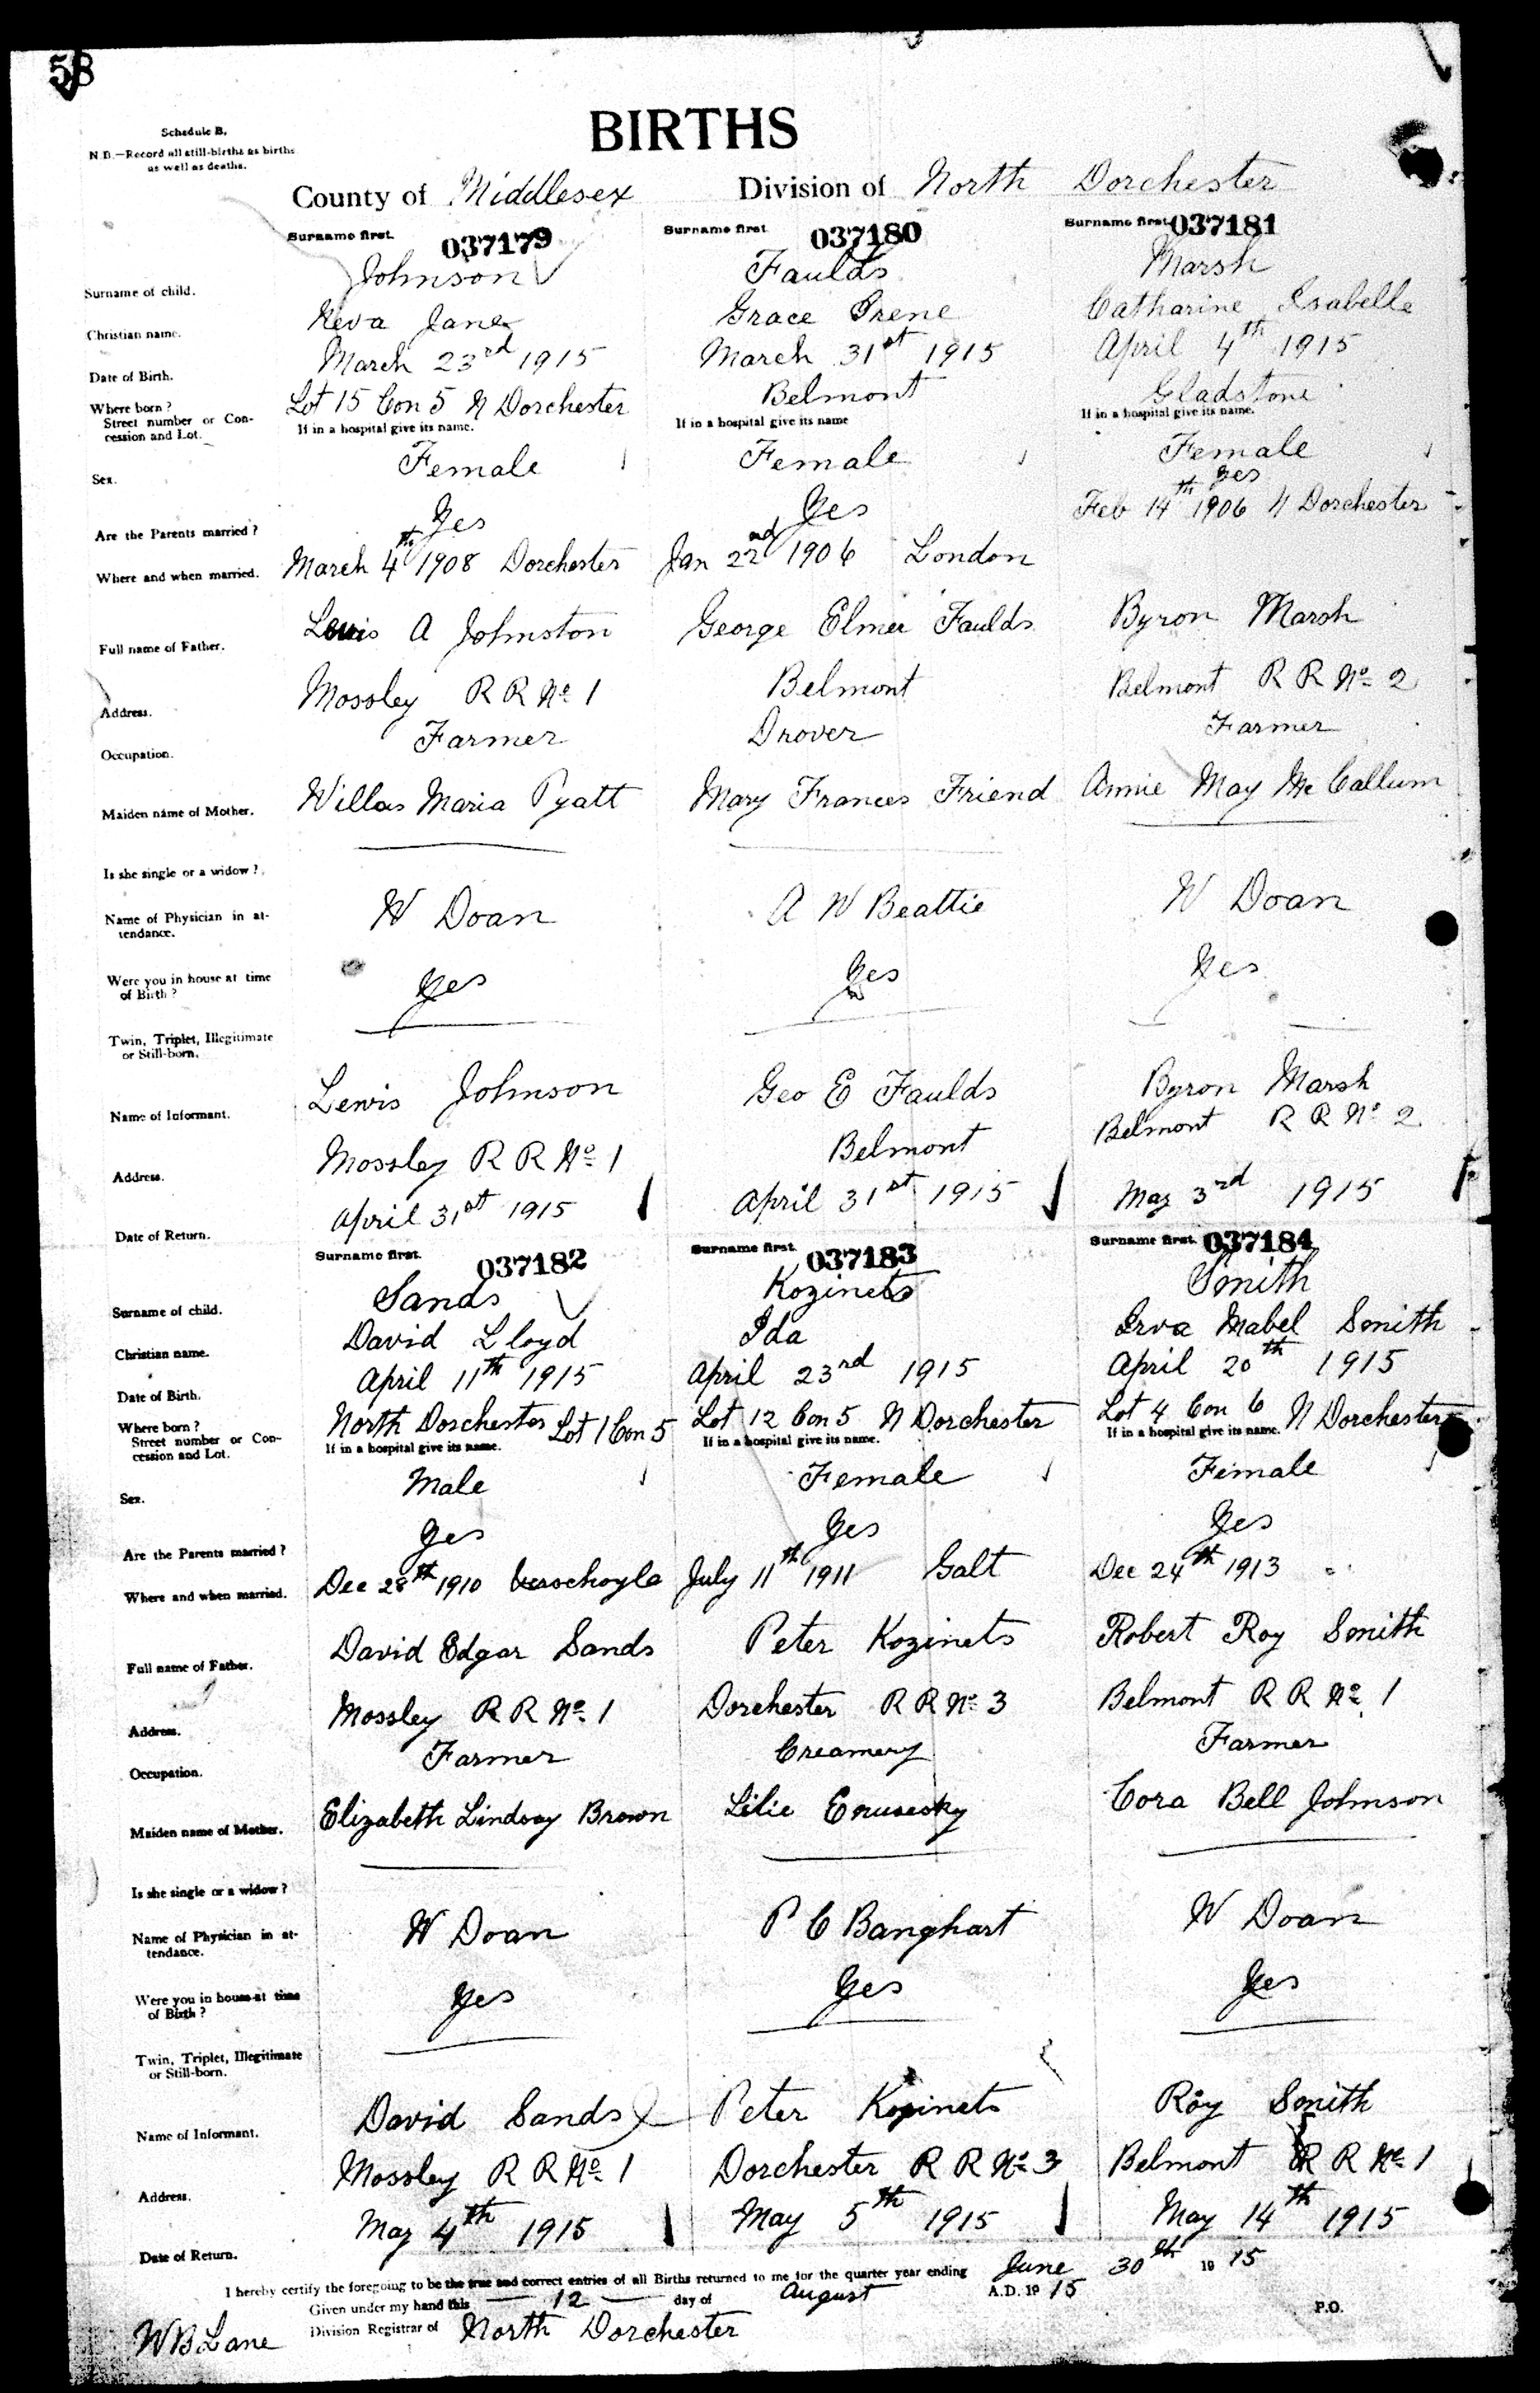 58
Schedule B.
N.B.—Record all still-births as births
as well as deaths.
BIRTHS
County of Middlesex Division of North Dorchester
Surname first. 037179 Surname first. 037180 Surname first. 037181
Surname of child. Johnson Faulds Marsh
Christian name. Reva Jane Grace Irene Catharine Isabelle
Date of Birth. March 23rd 1915 March 31st 1915 April 4th 1915
Where born? Lot 15 Con 5 N Dorchester Belmont Gladstone
Street number or Con-
cession and Lot. If in a hospital give its name. If in a hospital give its name If in a hospital give its name.
Sex. Female Female Female
Are the Parents married? Yes Yes Yes
Where and when married. March 4th 1908 Dorchester Jan 22nd 1906 London Feb 14th 1906 N Dorchester
Full name of Father. Lewis A Johnston George Elmer Faulds Byron Marsh
Address. Mossley R R No 1 Belmont Belmont R R No 2
Occupation. Farmer Drover Farmer
Maiden name of Mother. Willas Maria Pyatt Mary Frances Friend Annie May McCallum
Is she single or a widow?
Name of Physician in at-
tendance. W Doan A W Beattie W Doan
Were you in house at time
of Birth? Yes Yes Yes
Twin, Triplet, Illegitimate
or Still-born.
Name of Informant. Lewis Johnson Geo E Faulds Byron Marsh
Address. Mossley R R No 1 Belmont Belmont R R No 2
Date of Return. April 31st 1915 April 31st 1915 May 3rd 1915
Surname first. 037182 Surname first. 037183 Surname first. 037184
Surname of child. Sands Kozinets Smith
Christian name. David Lloyd Ida Irva Mabel Smith
Date of Birth. April 11th 1915 April 23rd 1915 April 20th 1915
Where born? North Dorchester Lot 1 Con 5 Lot 12 Con 5 N Dorchester Lot 4 Con 6 N Dorchester
Street number or Con-
cession and Lot. If in a hospital give its name. If in a hospital give its name. If in a hospital give its name.
Sex. Male Female Female
Are the Parents married? Yes Yes Yes
Where and when married. Dec 28th 1910 Verschoyle July 11th 1911 Galt Dec 24th 1913
Full name of Father. David Edgar Sands Peter Kozinets Robert Roy Smith
Address. Mossley R R No 1 Dorchester R R No 3 Belmont R R No 1
Occupation. Farmer Creamery Farmer
Maiden name of Mother. Elizabeth Lindsay Brown Lilie Cora Bell Johnson
Is she single or a widow?
Name of Physician in at-
tendance. W Doan P C Banghart W Doan
Were you in house at time
of Birth? Yes Yes Yes
Twin, Triplet, Illegitimate
or Still-born.
Name of Informant. David Sands Peter Kozinets Roy Smith
Address. Mossley R R No 1 Dorchester R R No 3 Belmont R R No 1
Date of Return. May 4th 1915 May 5th 1915 May 14th 1915
I hereby certify the foregoing to be the true and correct entries of all Births returned to me for the quarter year ending June 30th 19 15
Given under my hand this 12 day of August A.D. 19 15
W B Lane Division Registrar of North Dorchester P.O.